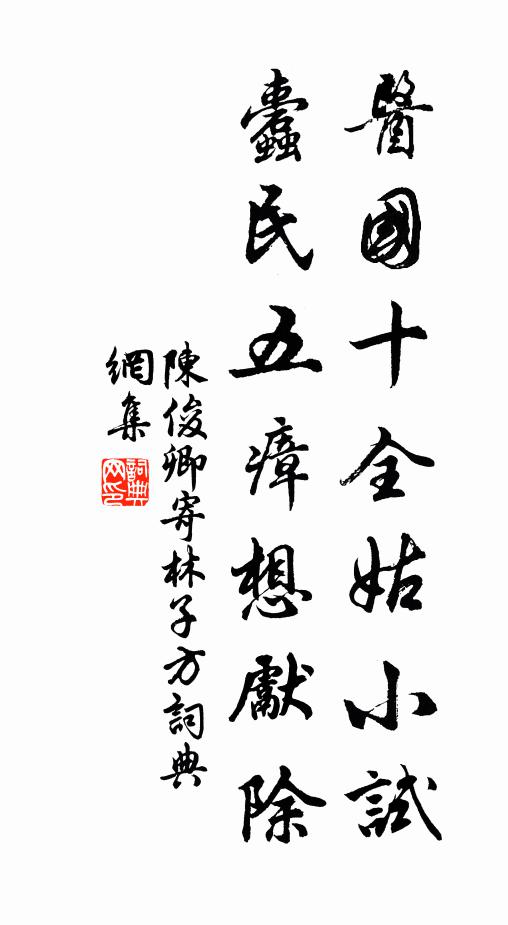 醫國十全姑小試
蠹民五瘴想獻除
陳俊卿寄林子方詞典
網集
詞典
网印